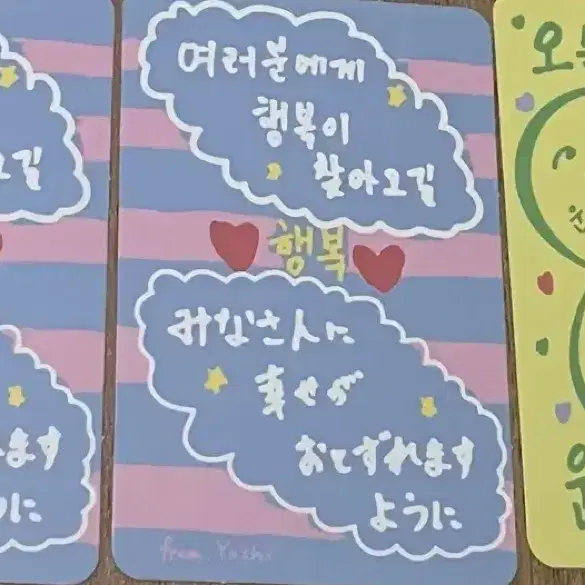 여러분에게
행복이
찾아오길
행복
みなさんに
幸せが
おとずれます
ように
from. Yoshi
오길
ます
に
오
원